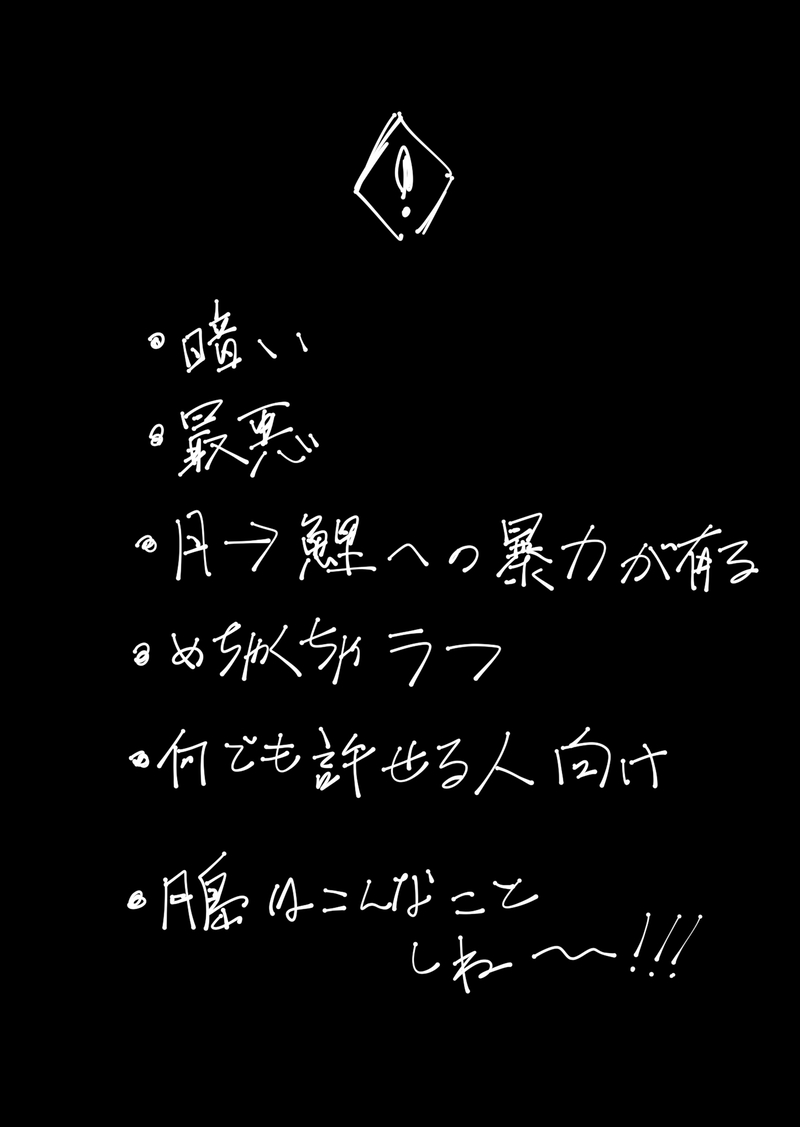 !
・暗い
・最悪
・月→鯉への暴力が有る
・めちゃくちゃラフ
・何でも許せる人向け
・月島はこんなこと
しね〜〜!!!